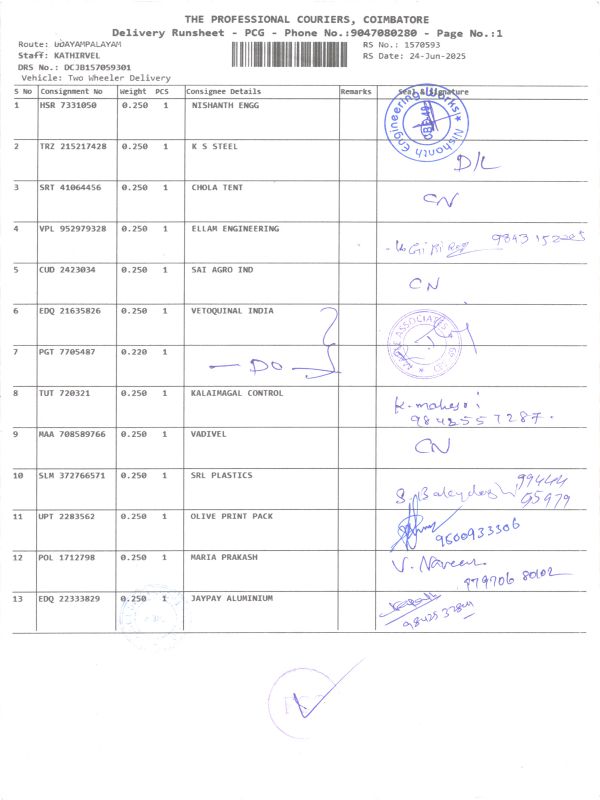 THE PROFESSIONAL COURIERS, COIMBATORE
Delivery Runsheet - PCG - Phone No.:9047080280 - Page No.:1
Route: UDAYAMPALAYAM RS No.: 1570593
Staff: KATHIRVEL RS Date: 24-Jun-2025
DRS No.: DCJB157059301
Vehicle: Two Wheeler Delivery
S No Consignment No Weight PCS Consignee Details Remarks Seal & Signature
1 HSR 7331050 0.250 1 NISHANTH ENGG
Nishanth Engineering Works
2 TRZ 215217428 0.250 1 K S STEEL
D/L
3 SRT 41064456 0.250 1 CHOLA TENT
CN
4 VPL 952979328 0.250 1 ELLAM ENGINEERING
5 CUD 2423034 0.250 1 SAI AGRO IND
CN
6 EDQ 21635826 0.250 1 VETOQUINAL INDIA
ASSOCIATES
7 PGT 7705487 0.220 1
— DO —
8 TUT 720321 0.250 1 KALAIMAGAL CONTROL
9 MAA 708589766 0.250 1 VADIVEL
CN
10 SLM 372766571 0.250 1 SRL PLASTICS
99444
55979
11 UPT 2283562 0.250 1 OLIVE PRINT PACK
9500933306
12 POL 1712798 0.250 1 MARIA PRAKASH
V. Naveen
13 EDQ 22333829 0.250 1 JAYPAY ALUMINIUM